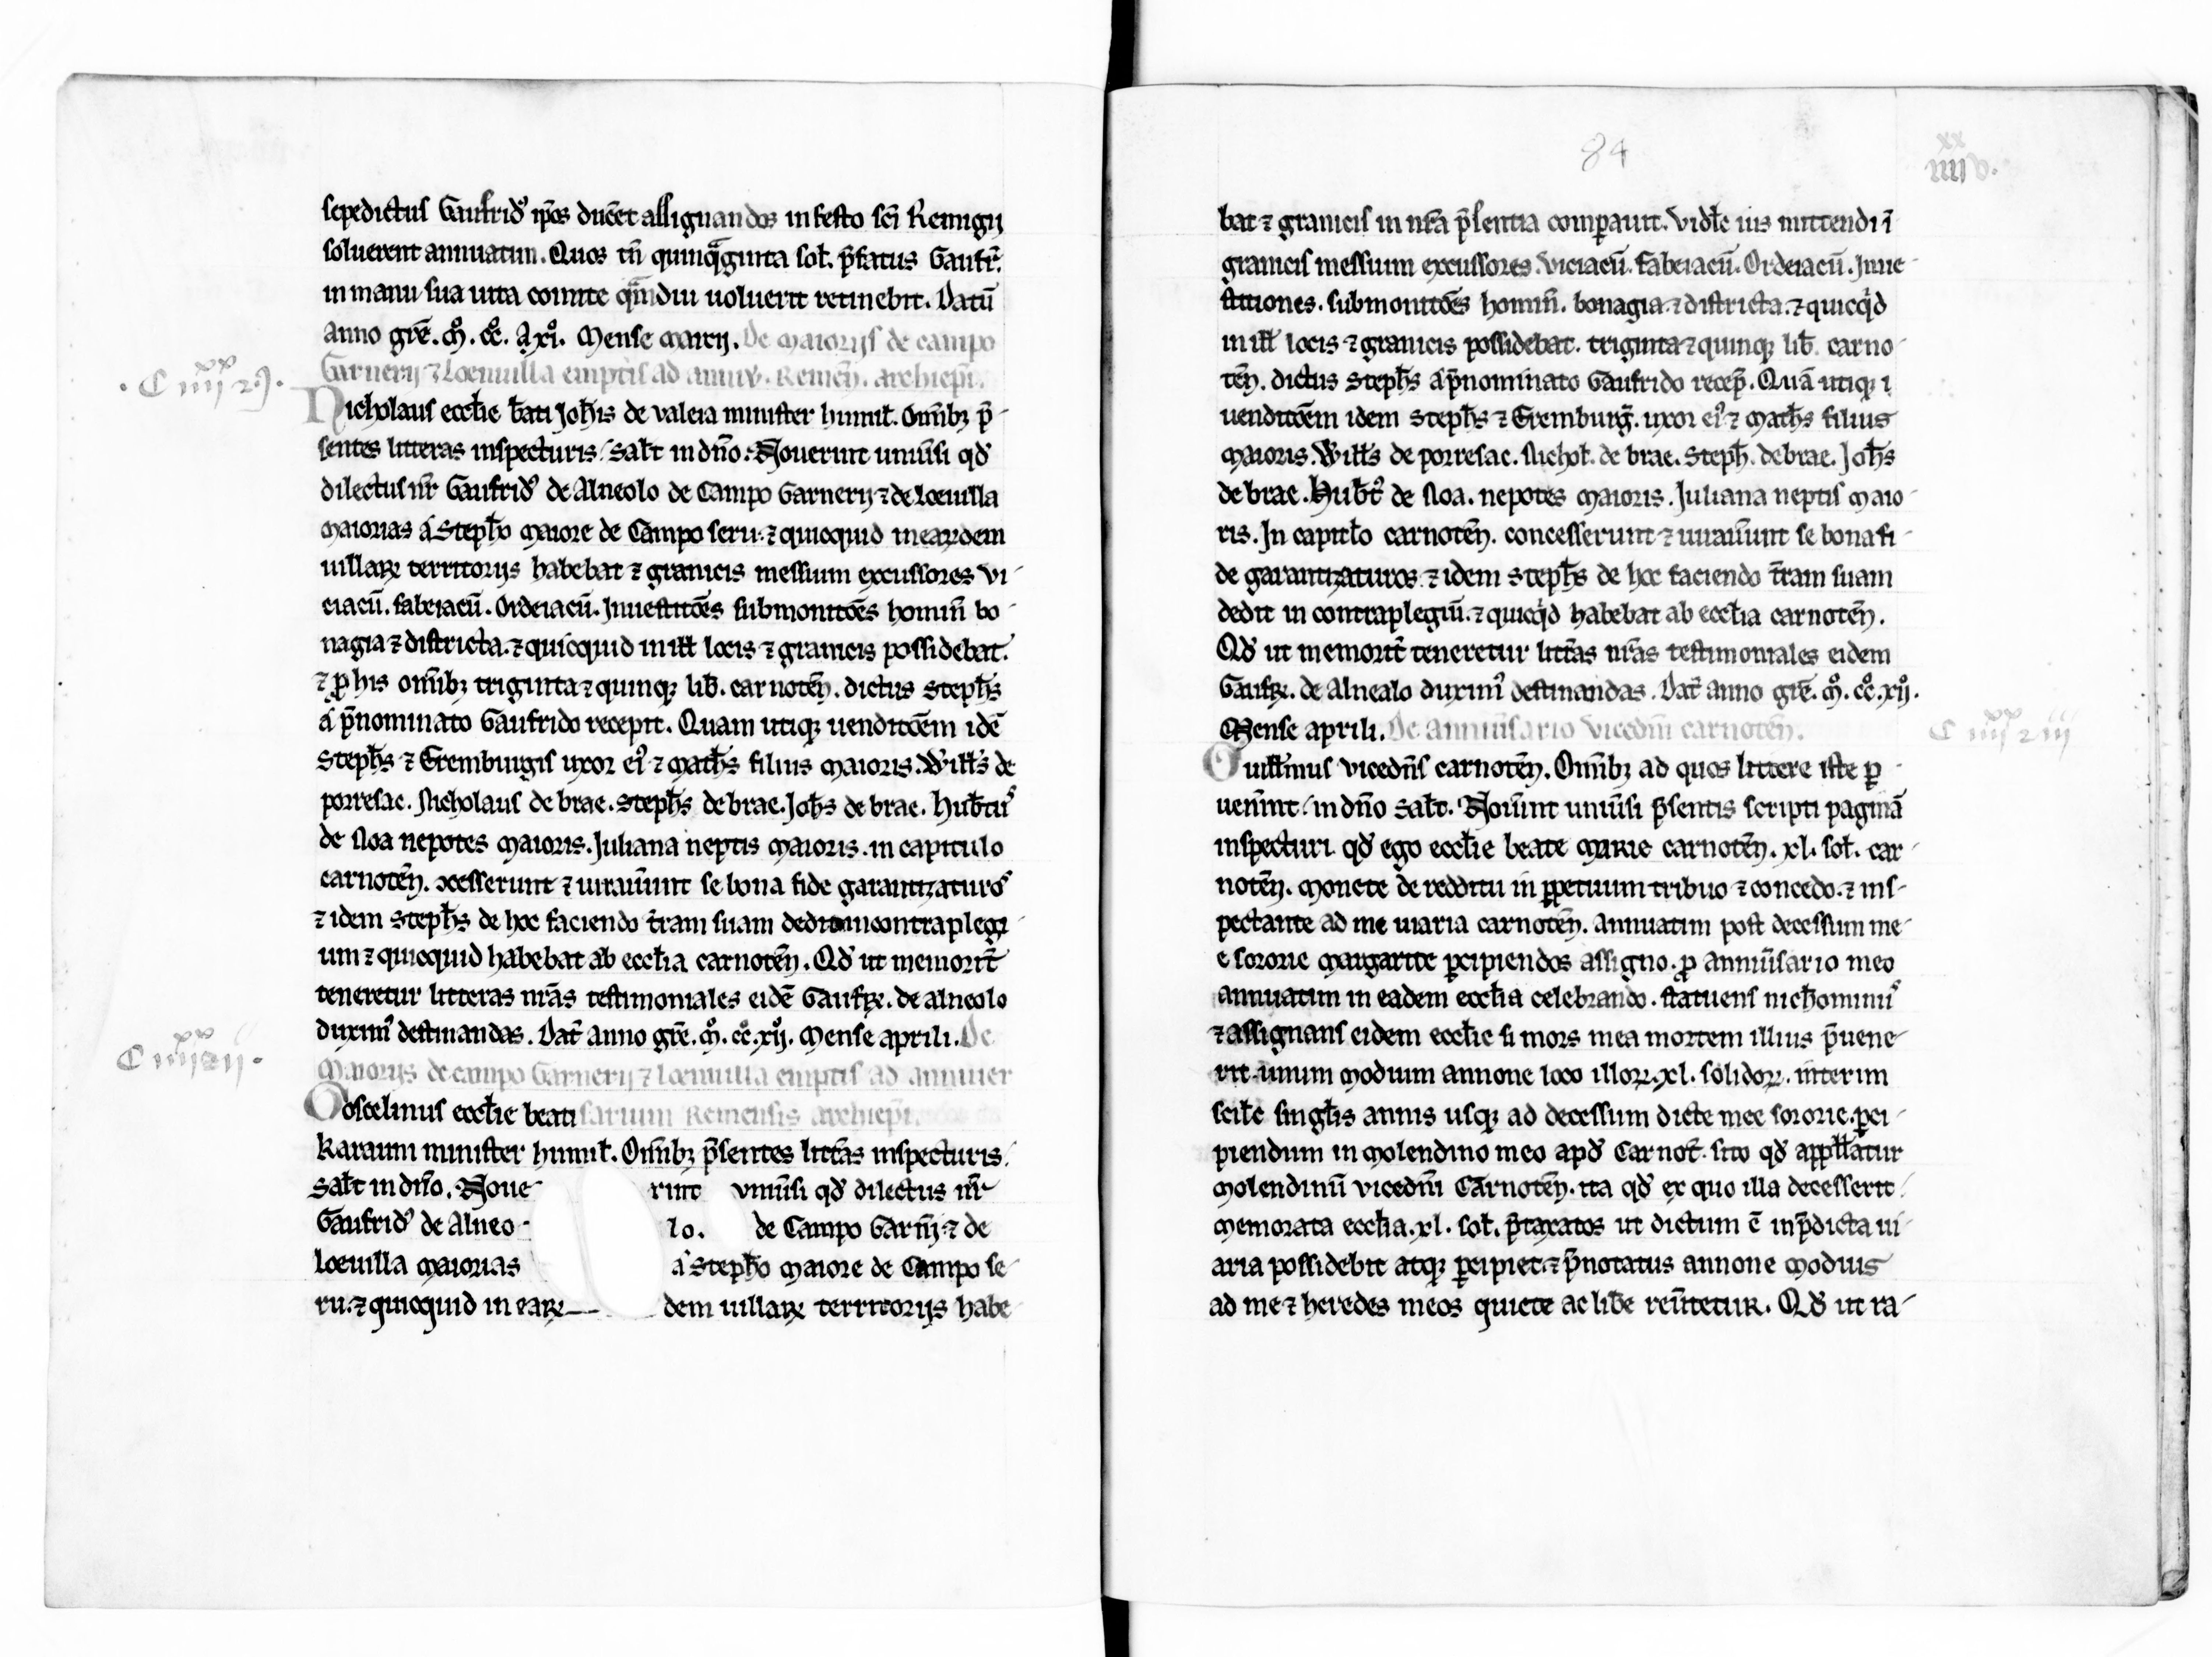 sepedictus Gaufridꝰ ip̃os ducẽt assignandos in festo sc̃i Remigij
soluerent annuatim. Quos tñ quinqͣginta sol̃. p̃fatus Gaufr̃.
in manu sua uita comite qͣmdiu uoluerit retinebit. Datũ
anno gr̃e. mͦ. ccͦ. xiͦ. Mense marcij. De maiorijs de campo
Garnerij ⁊ Loeuilla emptis ad anniv̾. Remeñ. archiep̃i.
.C iiij xx ꝯ.
Nicholaus eccl̃ie b̃ati Joh̃is de valeia minister humil̃. Om̃ibꝫ p̃-
sentes litteras inspecturis/ salt̃ in dño. Nouerint uniũsi qd̾
dilectus nr̃ Gaufridꝰ de Alneolo de Campo Garnerij ⁊ de loeuilla
maiorias a Steph̃o maiore de Campo seru. ⁊ quicquid in earũdem
uillaꝝ territorijs habebat ⁊ graneis messium excussores vi-
ciacũ. fabeiacũ. Ordeiacũ. Inuestitões submonitões hominũ bo-
nagia ⁊ districta. ⁊ quicquid in ill̃ locis ⁊ graneis possidebat.
⁊ ꝓ his om̃ibꝫ triginta ⁊ quinqꝫ lib̃. carnoteñ. dictus steph̃s
a p̃nominato Gaufrido recepit. Quam utiqꝫ uenditõem idẽ
steph̃s ⁊ Eremburgis uxor eiꝰ ⁊ math̃s filius maioris. Will̃s de
porresac. Nicholaus de brae. Steph̃s de brae. Joh̃s de brae. Hub̃tuꝰ
de Noa nepotes maioris. Juliana neptis maioris. in capitulo
carnoteñ. ꝯcesserunt ⁊ iurauũunt se bona fide garantizaturoꝰ
⁊ idem steph̃s de hoc faciendo t̃ram suam dedit in contraplegi-
um ⁊ quicquid habebat ab eccl̃ia carnoteñ. Qd̾ ut memorit̃
teneretur litteras nr̃as testimoniales eidẽ Gaufꝝ. de alneolo
duximꝰ destinandas. Dat̃ anno gr̃e. mͦ. ccͦ. xijͦ. Mense aprili. De
maiorijs de campo Garnerij ⁊ loeuilla emptis ad anniuer
C iiij xx ij.
Goscelinus eccl̃ie beati sarium Remensis archiep̃i.
Karauni minister humil̃. Om̃ibꝫ p̃sentes litt̃as inspecturis.
salt̃ in dño. Noue- rint vniũsi qd̾ dilectus nr̃
Gaufridꝰ de Alneo- lo. de Campo Garñij ⁊ de
loeuilla maiorias a Steph̃o maiore de Campo se-
ru. ⁊ quicquid in eaꝝ dem uillaꝝ territorijs habe-
84
xx
iiij v.
bat ⁊ graneis in nr̃a p̃sentia comꝑauit. Vidl̃c ius mittendi ĩ
graneis messium excussores. viciacũ. fabeiacũ. Ordeiacũ. Inue-
stitiones. submonitões hominũ. bonagia. ⁊ districta. ⁊ quicqͥd
in ill̃ locis ⁊ graneis possidebat. triginta ⁊ quinqꝫ lib̃. carno-
teñ. dictus steph̃s a p̃nominato Gaufrido recep̃. Quã utiqꝫ i
uenditõem idem steph̃s ⁊ Eremburg̃. uxor eiꝰ ⁊ math̃s filius
maioris. Will̃s de porresac. Nichol̃. de brae. Steph̃. de brae. Joh̃s
de brae. Hub̃tꝰ de Noa. nepotes maioris. Juliana neptis maio-
ris. In capitl̃o carnoteñ. concesserunt ⁊ iurauũunt se bona fi-
de garantizaturos. ⁊ idem steph̃s de hoc faciendo t̃ram suam
dedit in contraplegiũ. ⁊ quicqͥd habebat ab eccl̃ia carnoteñ.
Qd̾ ut memorit̃ teneretur litt̃as nr̃as testimoniales eidem
Gaufꝝ. de Alnealo duximꝰ destinandas. Dat̃ anno gr̃e. mͦ. ccͦ. xijͦ.
Mense aprili. De anniũsario vicedñi carnoteñ.
C iiij xx iij
Guill̃mus vicedñs carnoteñ. Om̃ibꝫ ad quos littere iste ꝑ-
uenũint/ in dño salt̃. Nouũint uniũsi p̃sentis scripti paginã
inspecturi qd̾ ego eccl̃ie beate marie carnoteñ. xl. sol̃. car-
noteñ. monete de redditu in ꝑpetuum tribuo ⁊ concedo. ⁊ in s-
pectante ad me uiaria carnoteñ. annuatim post decessum me-
e sororie margarite ꝑcipiendos assigno. ꝓ anniũsario meo
annuatim in eadem eccl̃ia celebrando. statuens nich̃ominuꝰ
⁊ assignans eidem eccl̃ie si mors mea mortem illius p̃uene-
rit unum modium annone loco illoꝝ. xl. solidoꝝ. interim
scil̃c singl̃is annis usqꝫ ad decessum dicte mee sororie. ꝑci-
piendum in molendino meo apd̾ Carnot̃. sito qd̾ appell̃atur
molendinũ vicedñi Carnoteñ. ita qd̾ ex quo illa decesserit.
memorata eccl̃ia. xl. sol̃. p̃taxatos ut dictum ẽ in p̃dicta ui-
aria possidebit atqꝫ ꝑcipiet. ⁊ p̃notatus annone modius
ad me ⁊ heredes meos quiete ac lib̾e reũtetur. Qd̾ ut ra-